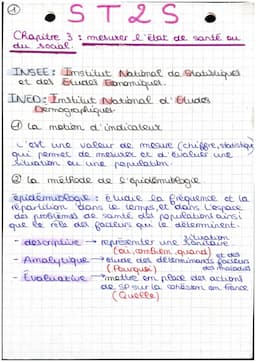 ①
ST2S
Chapitre 3 : mesurer l'état de santé ou
du social.
INSEE : Institut National de Statistiques
et des Études Économiques.
INED : Institut National d'Études
Démographiques.
① la notion d'indicateur
C'est une valeur de mesure (chiffre, statistique)
qui permet de mesurer et d'évaluer une
situation ou une population.
② la méthode de l'épidémiologie
épidémiologie : étudie la fréquence et la
répartition dans le temps et dans l'espace
des problèmes de santé des populations ainsi
que le rôle des facteurs qui le déterminent.
- descriptive → représenter une situation sanitaire
(où, combien, quand)
- Analytique → étude des déterminants facteurs et des maladies
(Pourquoi)
- Évaluative → mettre en place des actions
de SP sur la en France
(Quelle)